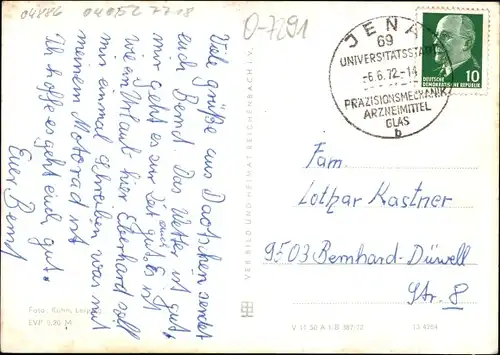 04886 040652 7718
O-7291
Viele grüße aus Dautschen sendet
euch Bernd. Das Wetter ist gut.
mir geht es zur Zeit auch gut. Es ist
wie im Urlaub hier. Eberhard soll
mir einmal schreiben was mit
meinem Motorad ist
Ich hoffe es geht euch gut.
Euer Bernd
Foto: Kuhn, Leipzig
EVP 0,20 M
VEB BILD UND HEIMAT REICHENBACH I. V.
JENA
69
UNIVERSITÄTSSTADT
-6.6.72-14
PRÄZISIONSMECHANIK
ARZNEIMITTEL
GLAS
b
10
DEUTSCHE
DEMOKRATISCHE REPUBLIK
Fam.
Lothar Kastner
9503 Bernhard-Düwell
Str. 8
V 11 50 A 1/B 387/72
13 4264